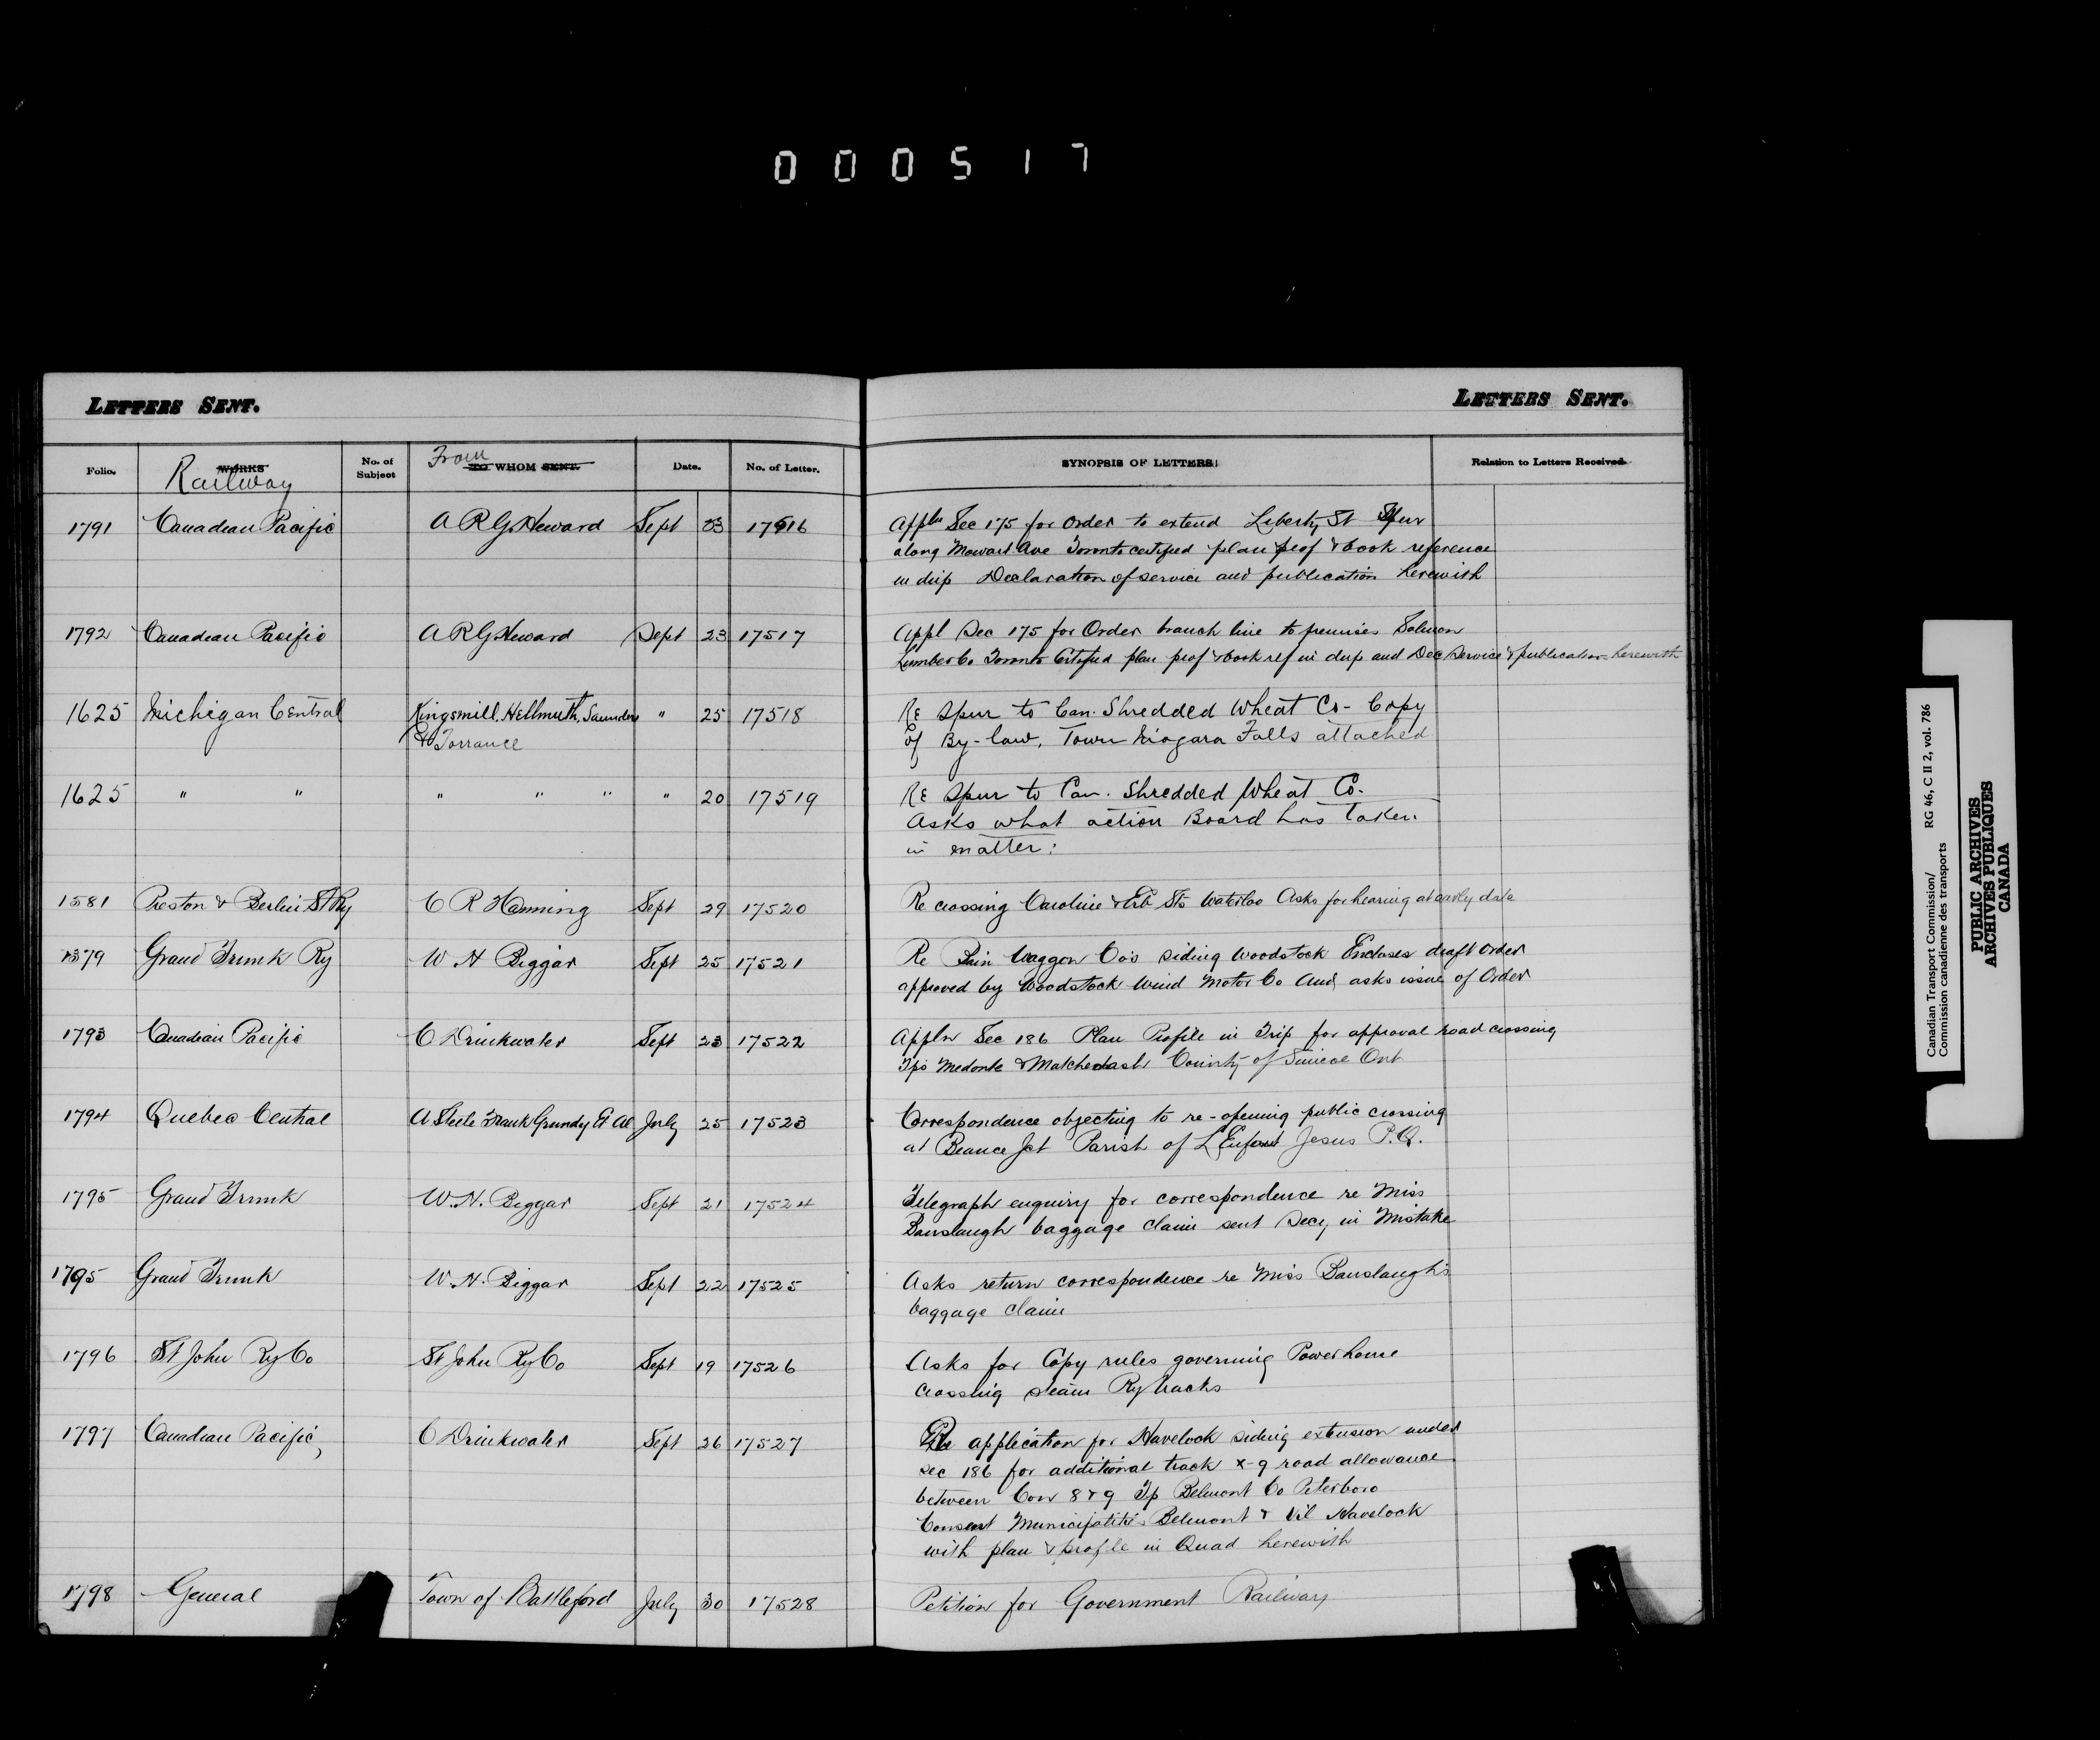 000517
LETTERS SENT.
LETTERS SENT.
Folio. WORKS Railway No. of Subject From TO WHOM SENT. Date. No. of Letter. SYNOPSIS OF LETTERS. Relation to Letters Received.
1791 Canadian Pacific A R G Heward Sept 23 17516 Appln Sec 175 for Order to extend Liberty St Spur
along Mowat Ave Toronto certified plan prof & book reference
in dup Declaration of service and publication herewith
1792 Canadian Pacific A R G Heward Sept 23 17517 Appl Sec 175 for Order branch line to premises Salmon
Lumber Co Toronto Certified plan prof & book ref in dup and Dec Service & publication herewith
1625 Michigan Central Kingsmill, Hellmuth, Saunders " 25 17518 Re Spur to Can. Shredded Wheat Co - Copy
& Torrance of By-law, Town Niagara Falls attached
1625 " " " " " " 20 17519 Re Spur to Can. Shredded Wheat Co.
Asks what action Board has taken
in matter.
1581 Preston & Berlin St Ry C R Hanning Sept 29 17520 Re crossing Caroline & Erb Sts Waterloo Asks for hearing at early date
1379 Grand Trunk Ry W H Biggar Sept 25 17521 Re Bain Waggon Co's siding Woodstock Encloses draft Order
approved by Woodstock Wind Motor Co and asks issue of Order
1793 Canadian Pacific C Drinkwater Sept 23 17522 Appln Sec 186 Plan Profile in Trip for approval road crossing
Tps Medonte & Matchedash County of Simcoe Ont
1794 Quebec Central A Steele Frank Grundy Et Al July 25 17523 Correspondence objecting to re-opening public crossing
at Beauce Jct Parish of L'Enfant Jesus P.Q.
1795 Grand Trunk W. H. Biggar Sept 21 17524 Telegraph enquiry for correspondence re Miss
Banslaugh baggage claim sent Secy in Mistake
1795 Grand Trunk W. H. Biggar Sept 22 17525 Asks return correspondence re Miss Banslaugh's
baggage claim
1796 St John Ry Co St John Ry Co Sept 19 17526 Asks for Copy rules governing Power house
crossing steam Ry tracks
1797 Canadian Pacific, C Drinkwater Sept 26 17527 Re application for Havelock siding extension under
sec 186 for additional track x-g road allowance
between Con 8 & 9 Tp Belmont Co Peterboro
Consent Municipalitis Belmont & Vil Havelock
with plan & profile in Quad herewith
1798 General Town of Battleford July 30 17528 Petition for Government Railway
Canadian Transport Commission/ RG 46, C II 2, vol. 786
Commission canadienne des transports
PUBLIC ARCHIVES
ARCHIVES PUBLIQUES
CANADA